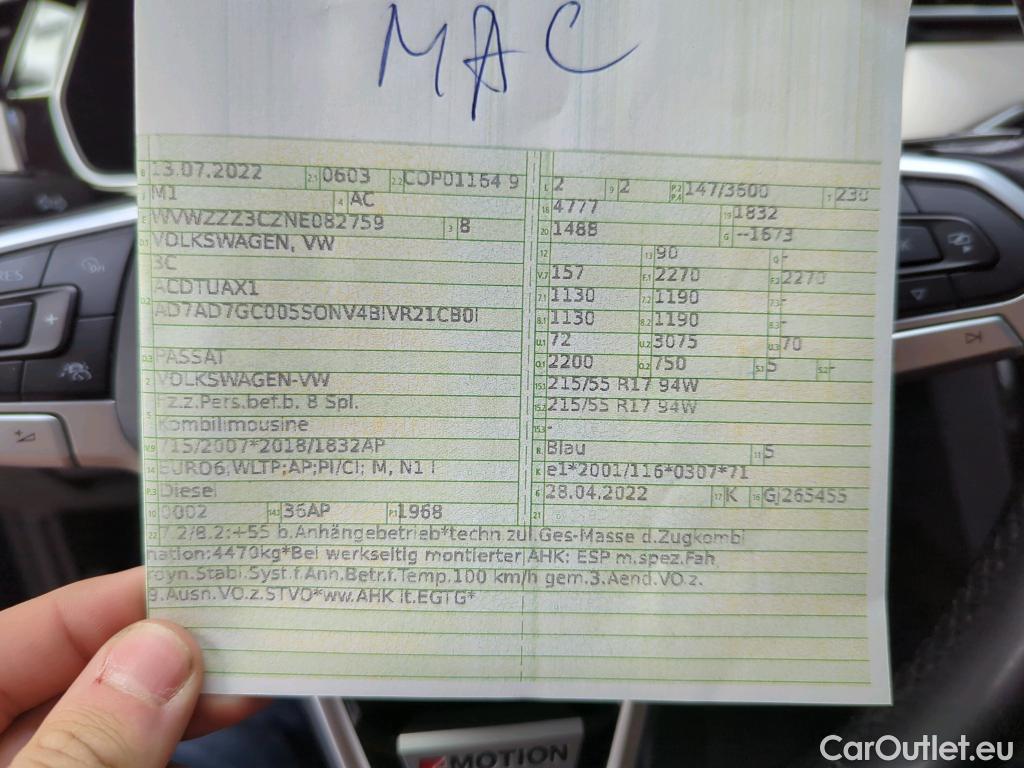 MAC
B 13.07.2022 2.1 0603 2.2 COP01164 9
J M1 4 AC
E WVWZZZ3CZNE082759 3 8
D.1 VOLKSWAGEN, VW
3C
D.2 ACDTUAX1
AD7AD7GC005SONV4BIVR21CB0I
D.3 PASSAT
2 VOLKSWAGEN-VW
5 Fz.z.Pers.bef.b. 8 Spl.
Kombilimousine
V.9 715/2007*2018/1832AP
14 EURO6;WLTP;AP;PI/CI; M, N1 I
P.3 Diesel
10 0002 14.1 36AP P.1 1968
L 2 9 2 P.2 P.4 147/3500 T 230
18 4777 19 1832
20 1488 G --1673
12 13 90 Q -
V.7 157 F.1 2270 F.2 2270
7.1 1130 7.2 1190 7.3 -
8.1 1130 8.2 1190 8.3 -
U.1 72 U.2 3075 U.3 70
O.1 2200 O.2 750 S.1 5 S.2 -
15.1 215/55 R17 94W
15.2 215/55 R17 94W
15.3 -
R Blau 11 5
K e1*2001/116*0307*71
6 28.04.2022 17 K 16 GJ265455
21
22 7.2/8.2:+55 b.Anhängebetrieb*techn.zul.Ges-Masse d.Zugkombi
nation:4470kg*Bei werkseitig montierter AHK: ESP m.spez.Fah
dyn.Stabi.Syst.f.Anh.Betr.f.Temp.100 km/h gem.3.Aend.VO.z.
9.Ausn.VO.z.STVO*ww.AHK lt.EGTG*
RES
MOTION
CarOutlet.eu